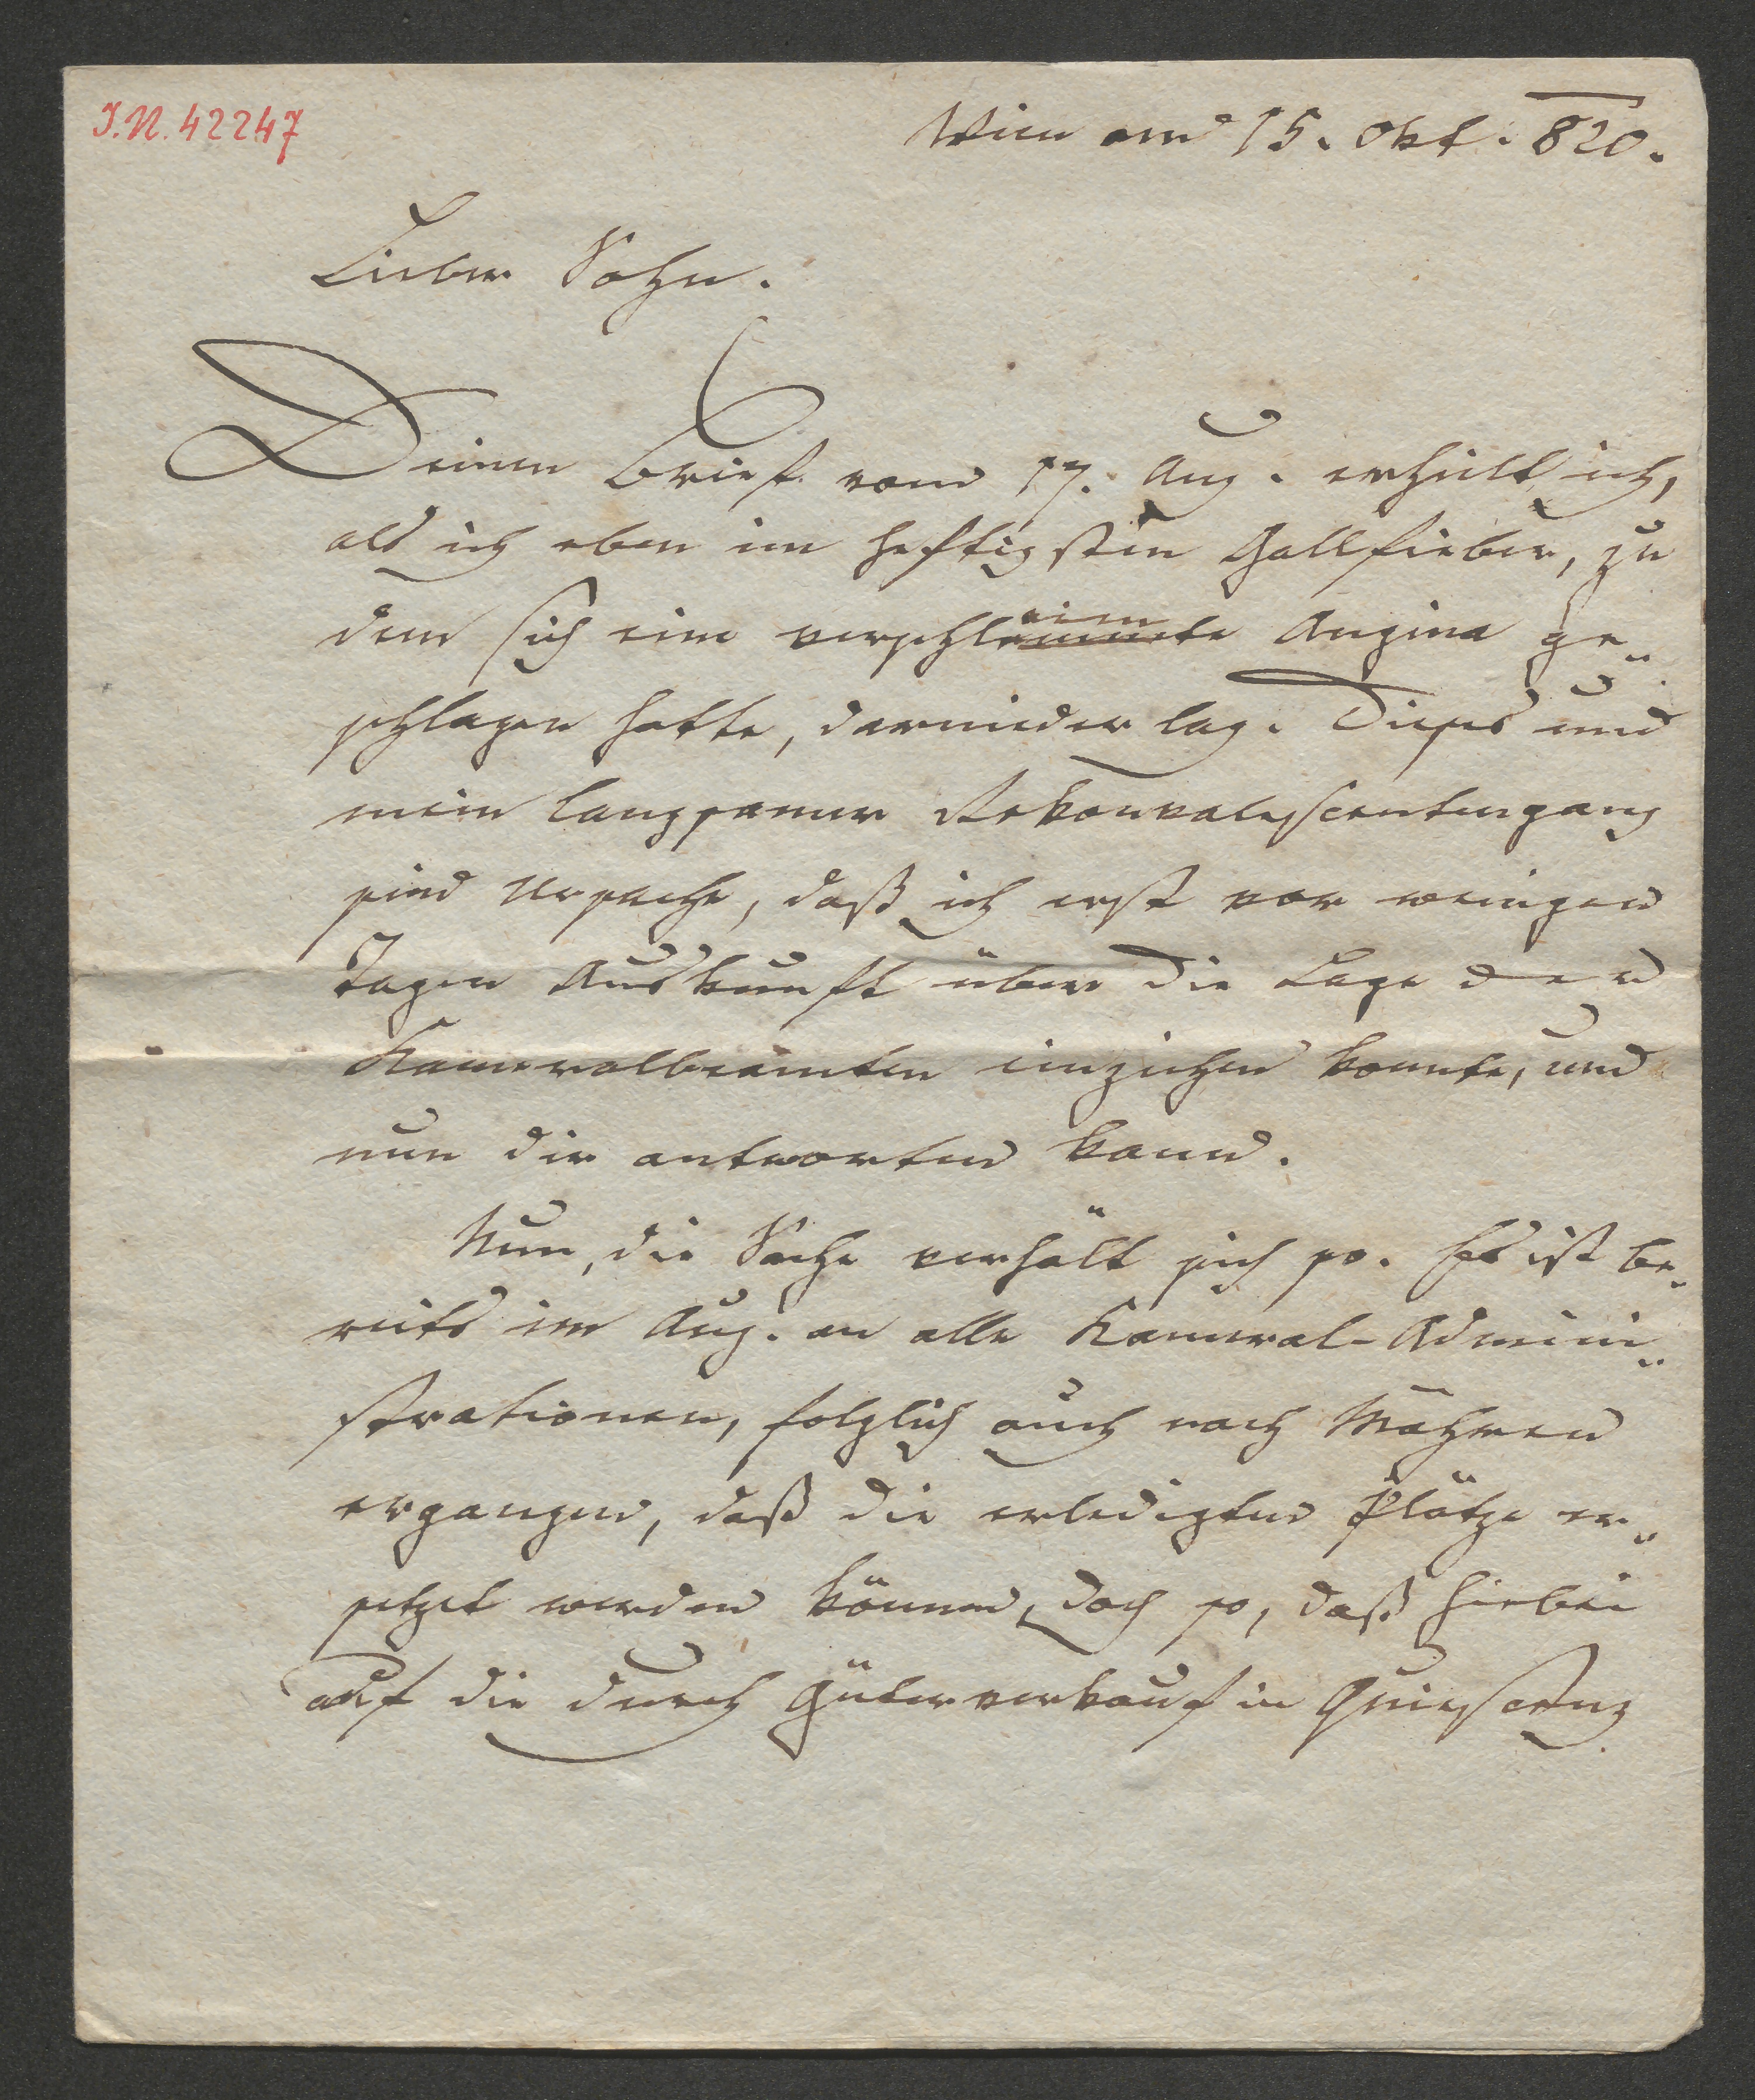 I.N. 42247
Wien am 15. Okt. 820.
Lieber Sohn.
Deinen Brief vom 17. Aug. erhielt ich,
als ich eben im heftigsten Gallfieber, zu
dem sich eine verschleimte Angina ge„
schlagen hatte, darnieder lag. Dieses und
mein langsamer Rekonvalesscentengang
sind Ursache, daß ich erst vor wenigen
Tagen Auskunft über die Lage der
Kameralbeamten einziehen konnte, und
nun dir antworten kann.
Nun, die Sache verhält sich so. Es ist be„
reits im Aug. an alle Kameral-Admini„
strationen, folglich auch nach Mähren
ergangen, daß die erledigten Plätze er„
setzet werden können, doch so, daß hiebei
auf die durch Güterverkauf in Quiescenz